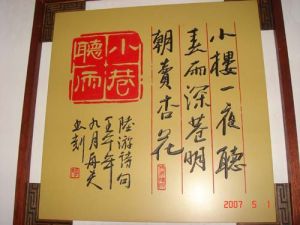 小樓一夜聽
春雨深巷明
朝賣杏花
小巷
聽雨
陸游詩句
壬午年
九月
刻
2007 5 1